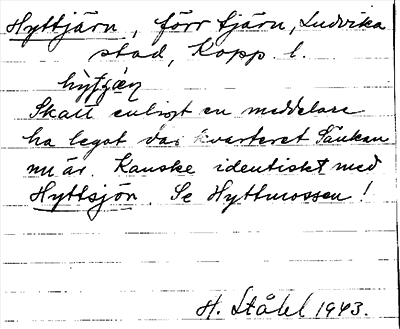 Hyttjärn, förr tjärn, Ludvika
stad, Kopp. l.
Skall enligt en meddelare
ha legat där kvarteret Sänkan
nu är. Kanske identiskt med
Hyttsjön. Se Hyttmossen!
H. Ståhl 1943.